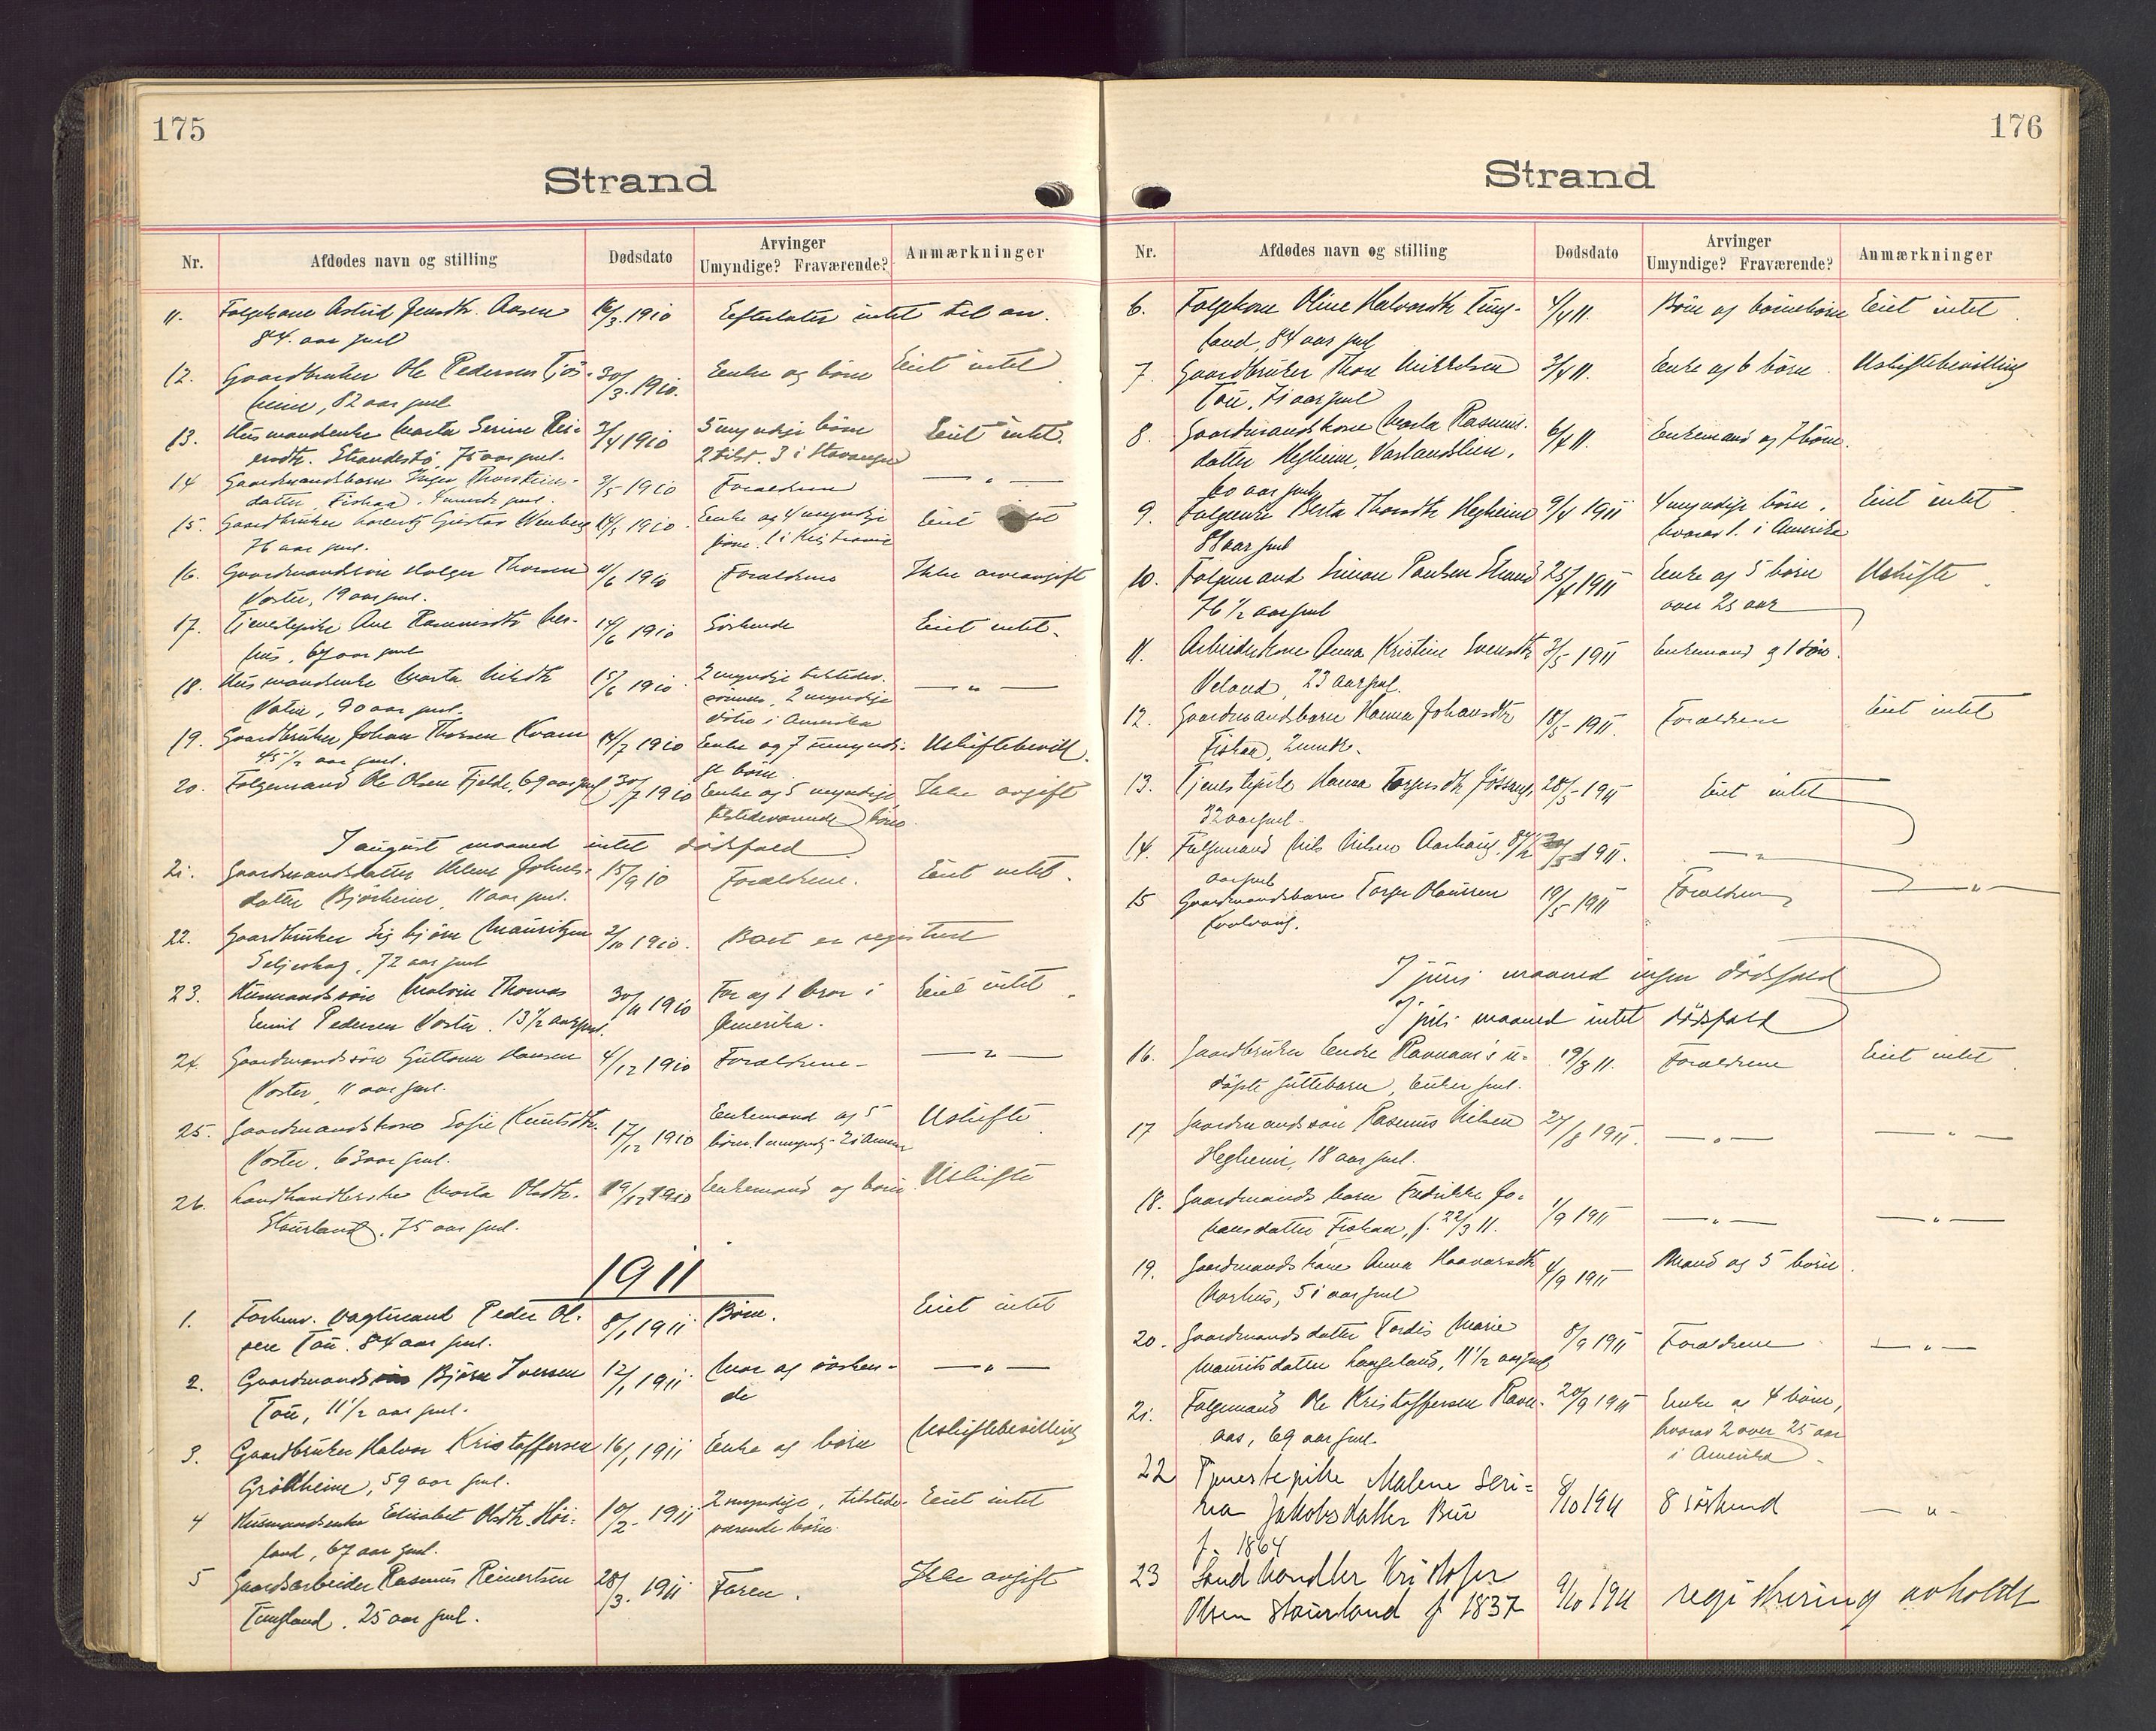 175
Strand
Nr. Afdødes navn og stilling Dødsdato Arvinger Umyndige? Fraværende? Anmærkninger
11. Folgekone Astrid Jensdtr. Aasen 16/3 1910 Efterlater intet til arv.
84 aar gml
12. Gaardbruker Ole Pedersen Tjös- 30/3 1910. Enke og börn Eiet intet
heim, 82 aar gml
13. Husmandsenke Marta Serine Rei- 2/4 1910 5 myndige börn Eiet intet
ersdtr. Strandestø, 75 aar gml. 2 tilst. 3 i Stavanger
14 Gaardmandsbarn Inger Thorsteins- 3/5 1910 Forældrene — " —
datter Fiskaa, 4 mndr gml.
15. Gaardbruker Lorentz Gustav Wenberg 14/5 1910. Enke og 4 myndige Eiet intet
76 aar gml. börn. 1 i Kristiania
16. Gaardmandssön Holger Thorsen 11/6 1910 Forældrene Ikke arveavgift
Voster, 19 aar gml.
17. Tjenestepike Ane Rasmusdtr 14/6 1910 Söskende Eiet intet.
67 aar gml
18. Husmandsenke Marta Nilsdtr 15/6 1910 2 myndige tilstedev. — " —
Vatne, 90 aar gml. sönner, 2 myndige
dötre i Amerika
19. Gaardbruker Johan Thorsen Kvam 14/7 1910 Enke og 7 umyndi- Uskiftebevill.
45 1/2 aar gml. ge börn
20. Folgemand Ole Olsen Fjelde, 69 aar gml 30/7 1910 Enke og 5 myndige Ikke avgift
tilstedeværende börn.
I august maaned intet dödsfald
21. Gaardmandsdatter Helene Johns- 15/9 10 Forældrene. Eiet intet.
datter Björheim, 11 aar gml.
22. Gaardbruker Sigbjörn Mauritzen 2/10 1910. Boet er registrert
Seljeskog, 72 aar gml
23. Husmandssön Malvin Thomas 30/11 1910 Far og 1 bror i Eiet intet.
Emil Pedersen Voster. 13 1/2 aar gml. Amerika.
24. Gaardmandssön Guttorm Hansen 4/12 1910 Forældrene — " —
Voster, 11 aar gml.
25. Gaardmandskone Sofie Knutsdtr. 17/12 1910 Enkemand og 5 Uskifte
Voster, 63 aar gml. börn. 1 umyndig - 2 i Amerika
26. Landhandlerske Marta Olsdtr. 19/12 1910 Enkemand og börn Uskifte
Staurland, 75 aar gml.
1911
1. Forhenv. vagtmand Peder Ol- 8/1 1911 Börn. Eiet intet
sen Tau. 84 aar gml.
2. Gaardmands Björn Iversen 12/1 1911 Mor og sösken- — " —
Tau, 11 1/2 aar gml. de
3. Gaardbruker Halvor Kristoffersen 16/1 1911 Enke og börn Uskiftebevilling
Grödheim, 59 aar gml.
4 Husmandsenke Elisabet Olsdtr. Hör- 10/2 1911 2 myndige, tilstede- Eiet intet
land, 67 aar gml. værende börn.
5 Gaardsarbeider Rasmus Reinertsen 28/3. 1911 Faren. Ikke avgift
Tungland. 25 aar gml.
176
Strand
Nr. Afdødes navn og stilling Dødsdato Arvinger Umyndige? Fraværende? Anmærkninger
6. Folgekone Oline Halvorsdtr Tung- 4/4 11. Börn og börnebörn Eiet intet
land, 84 aar gml
7. Gaardbruker Thore Mikkelsen 3/4 11. Enke og 6 börn. Uskiftebevilling
Tau, 71 aar gml
8. Gaardmandskone Marta Rasmus- 6/4 11. Enkemand og 7 börn.
datter Hegheim, Vaslandslien,
60 aar gml
9. Folgeenke Berta Thorsdtr Hegheim 9/4 1911 4 myndige börn, Eiet intet
88 aar gml hvorav 1 i Amerika
10. Folgemand Simon Paulsen Strand 25/4 1911 Enke og 5 börn Uskifte
76 1/2 aar gml over 25 aar
11. Arbeiderkone Anna Kristine Svendsdtr 3/5 1911 Enkemand og 1 sön.
Veland, 23 aar gml.
12. Gaardmandsbarn Hanna Johansdtr 18/5 1911. Forældrene Eiet intet
Fiskaa, 2 mndr.
13. Tjenestepike Hanna Torgersdtr Jössang, 28/5 1911 Eiet intet
32 aar gml.
14. Folgemand Nils Nilsen Aarhaug, 84 1/2 /5 1911. — " —
aar gml
15 Gaardmandsbarn Torger Olaussen 19/5 1911 Forældrene — " —

I juni maaned ingen dödsfald
I juli maaned intet dödsfald
16. Gaardbruker Endre Ravnaas's u- 19/8 11. Forældrene Eiet intet
döpte guttebarn, gml.
17 Gaardmandssön Rasmus Nilsen 27/8 1911. — " — — " —
Hegheim, 18 aar gml.
18. Gaardmands barn Fredrikke Jo- 1/9 1911 — " — — " —
hansdatter Fiskaa, f. 22/3 11.
19. Gaardmandskone Anna Haavarsdtr 4/9 1911 Mand og 5 börn.
51 aar gml
20. Gaardmandsdatter Tordis Marie 8/9 1911 Forældrene — " —
Mauritsdatter Langeland, 11 1/2 aar gml
21. Folgemand Ole Kristoffersen Ravn- 20/9 1911 Enke og 4 börn,
aas, 69 aar gml. hvorav 2 over 25 aar
i Amerika
22 Tjenestepike Malene Seri- 8/10 1911 8 söskend — " —
na Jakobsdatter Bu
f. 1864
23 Landhandler Kristofer 9/10 1911 registrering avholdt
Olsen Staurland f 1837